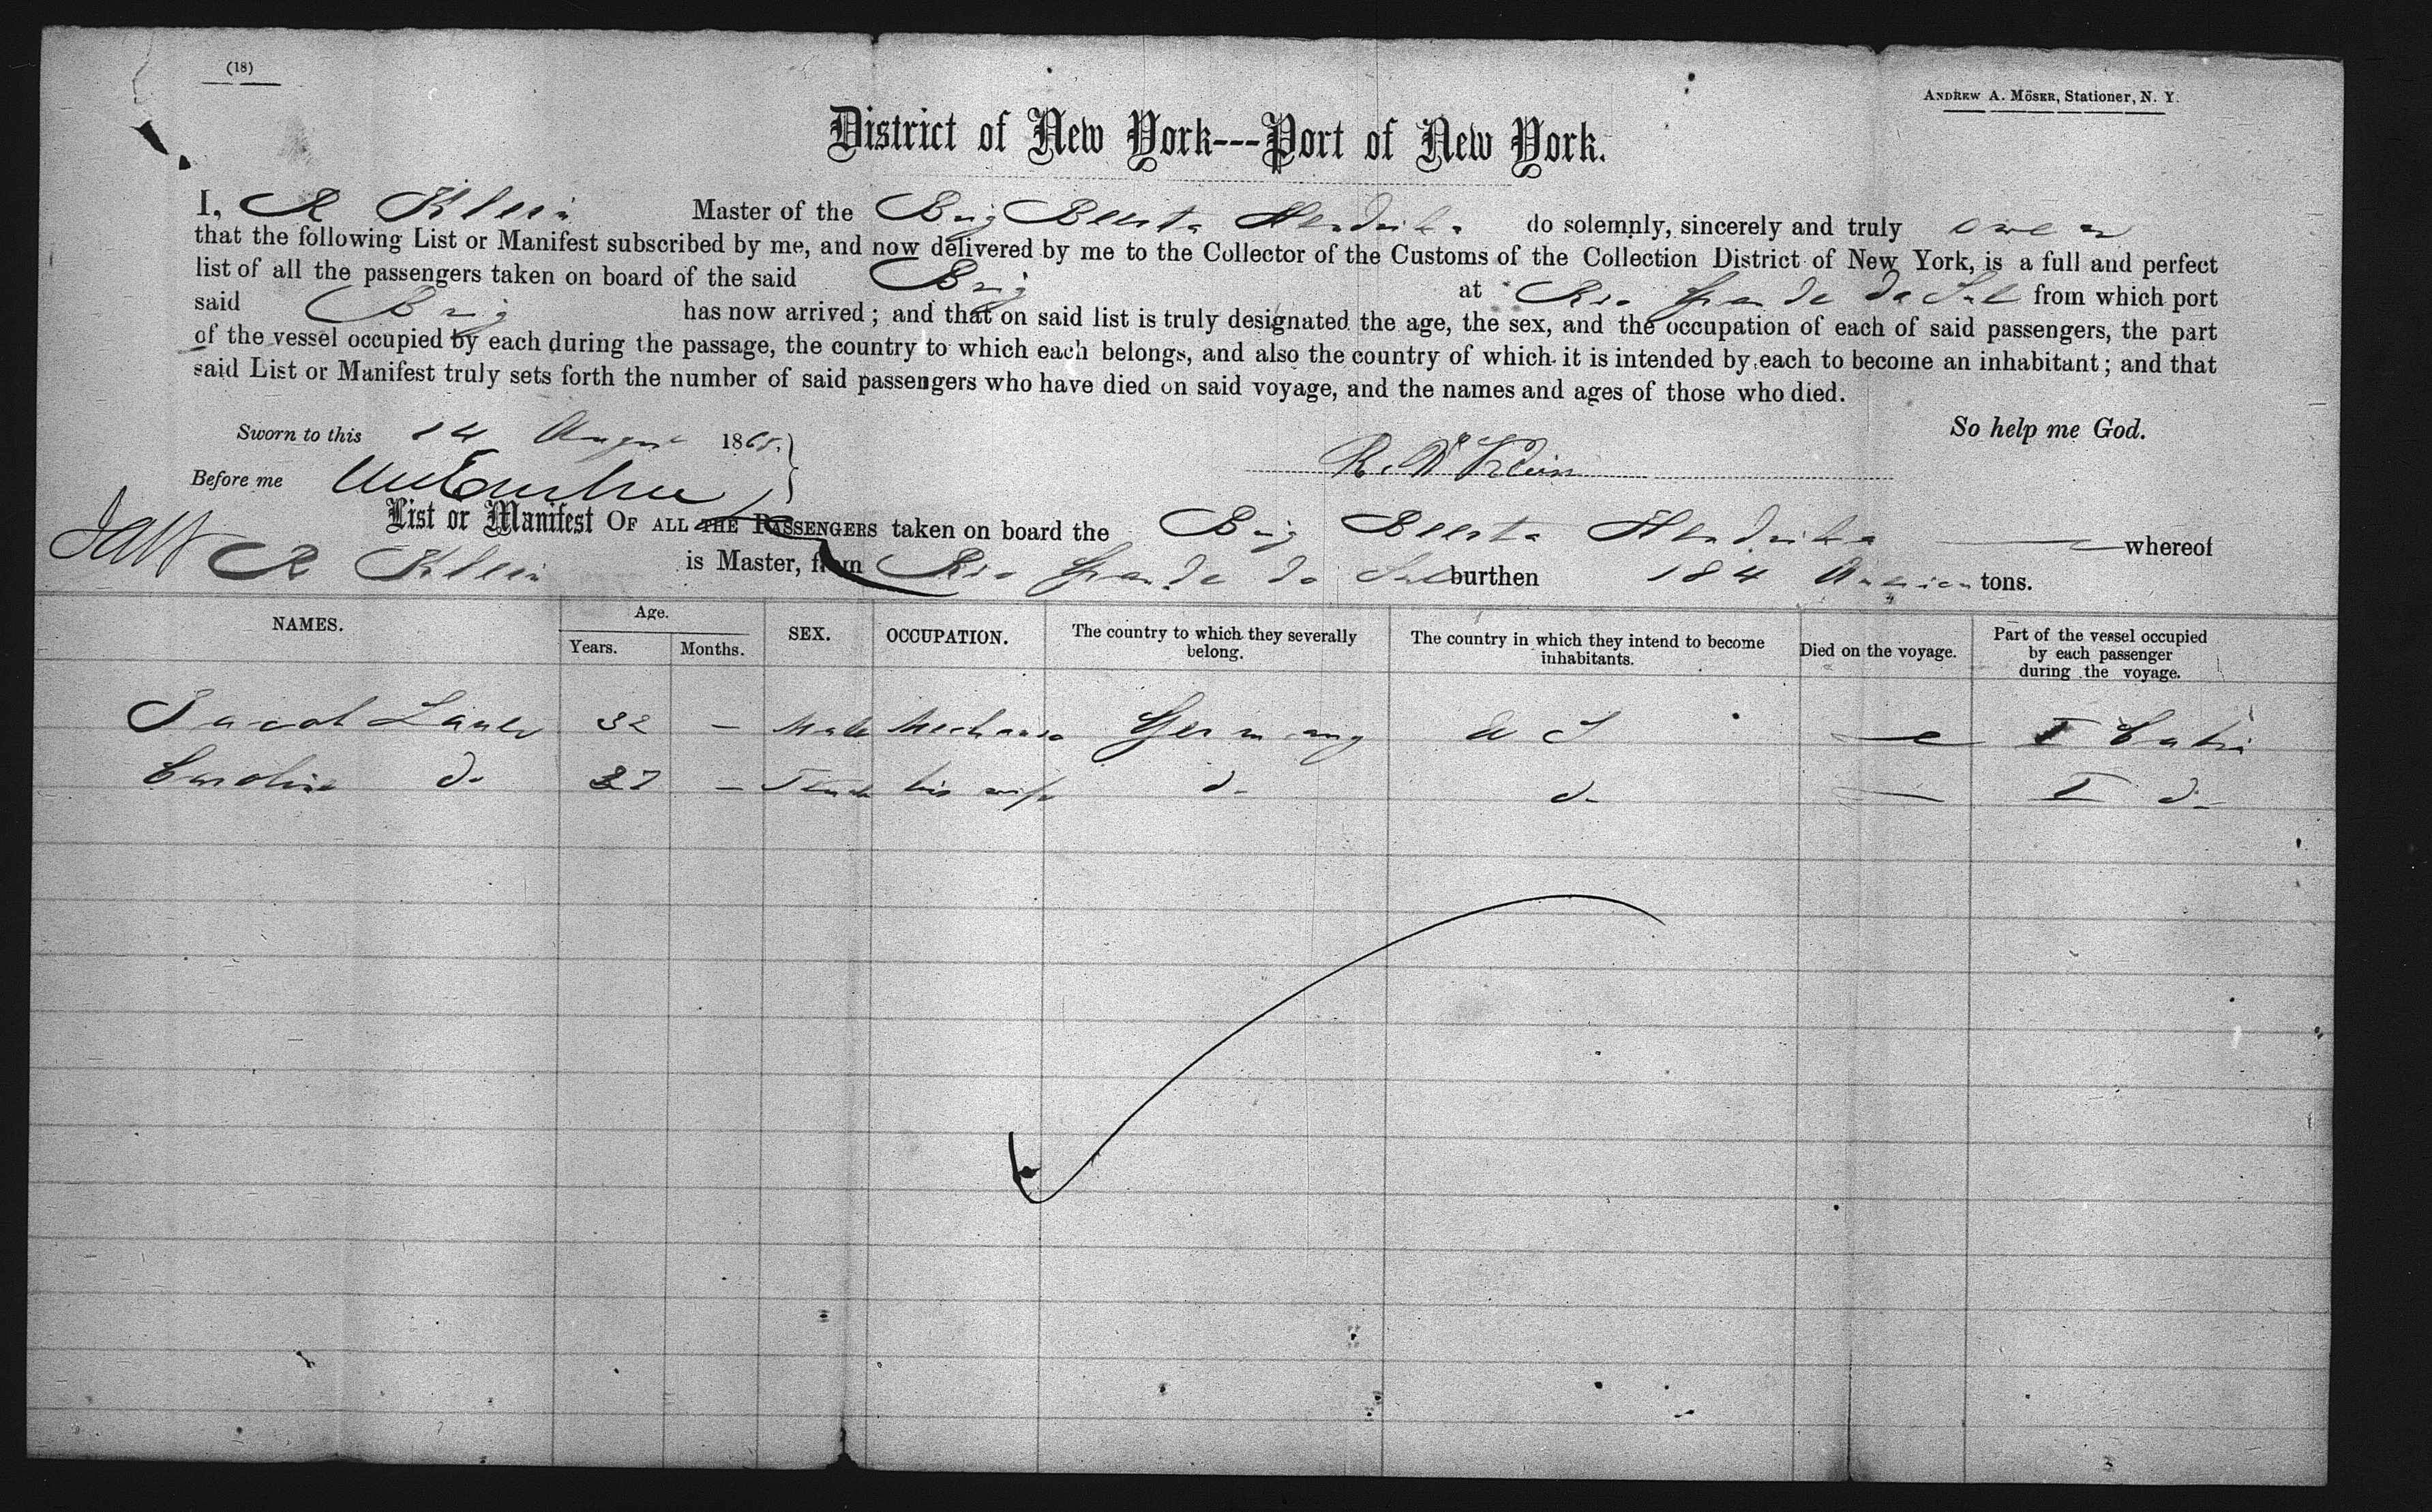 (18)
ANDREW A. MÖSER, Stationer, N. Y.
District of New York---Port of New York.
I, R Klein Master of the Brig Beerta Hendrika do solemnly, sincerely and truly swear
that the following List or Manifest subscribed by me, and now delivered by me to the Collector of the Customs of the Collection District of New York, is a full and perfect
list of all the passengers taken on board of the said Brig at Rio Grande do Sul from which port
said Brig has now arrived; and that on said list is truly designated the age, the sex, and the occupation of each of said passengers, the part
of the vessel occupied by each during the passage, the country to which each belongs, and also the country of which it is intended by each to become an inhabitant; and that
said List or Manifest truly sets forth the number of said passengers who have died on said voyage, and the names and ages of those who died.
So help me God.
Sworn to this 14 August 1865.
Before me
R. Klein
List or Manifest OF ALL THE PASSENGERS taken on board the Brig Beerta Hendrika whereof
R Klein is Master, from Rio Grande do Sul burthen 184 tons.
NAMES. Age. Years. Months. SEX. OCCUPATION. The country to which they severally belong. The country in which they intend to become inhabitants. Died on the voyage. Part of the vessel occupied by each passenger during the voyage.
Jacob 32 — Male Mechanic Germany U S — I Cabin
Caroline do 27 — Female his wife do do — I do